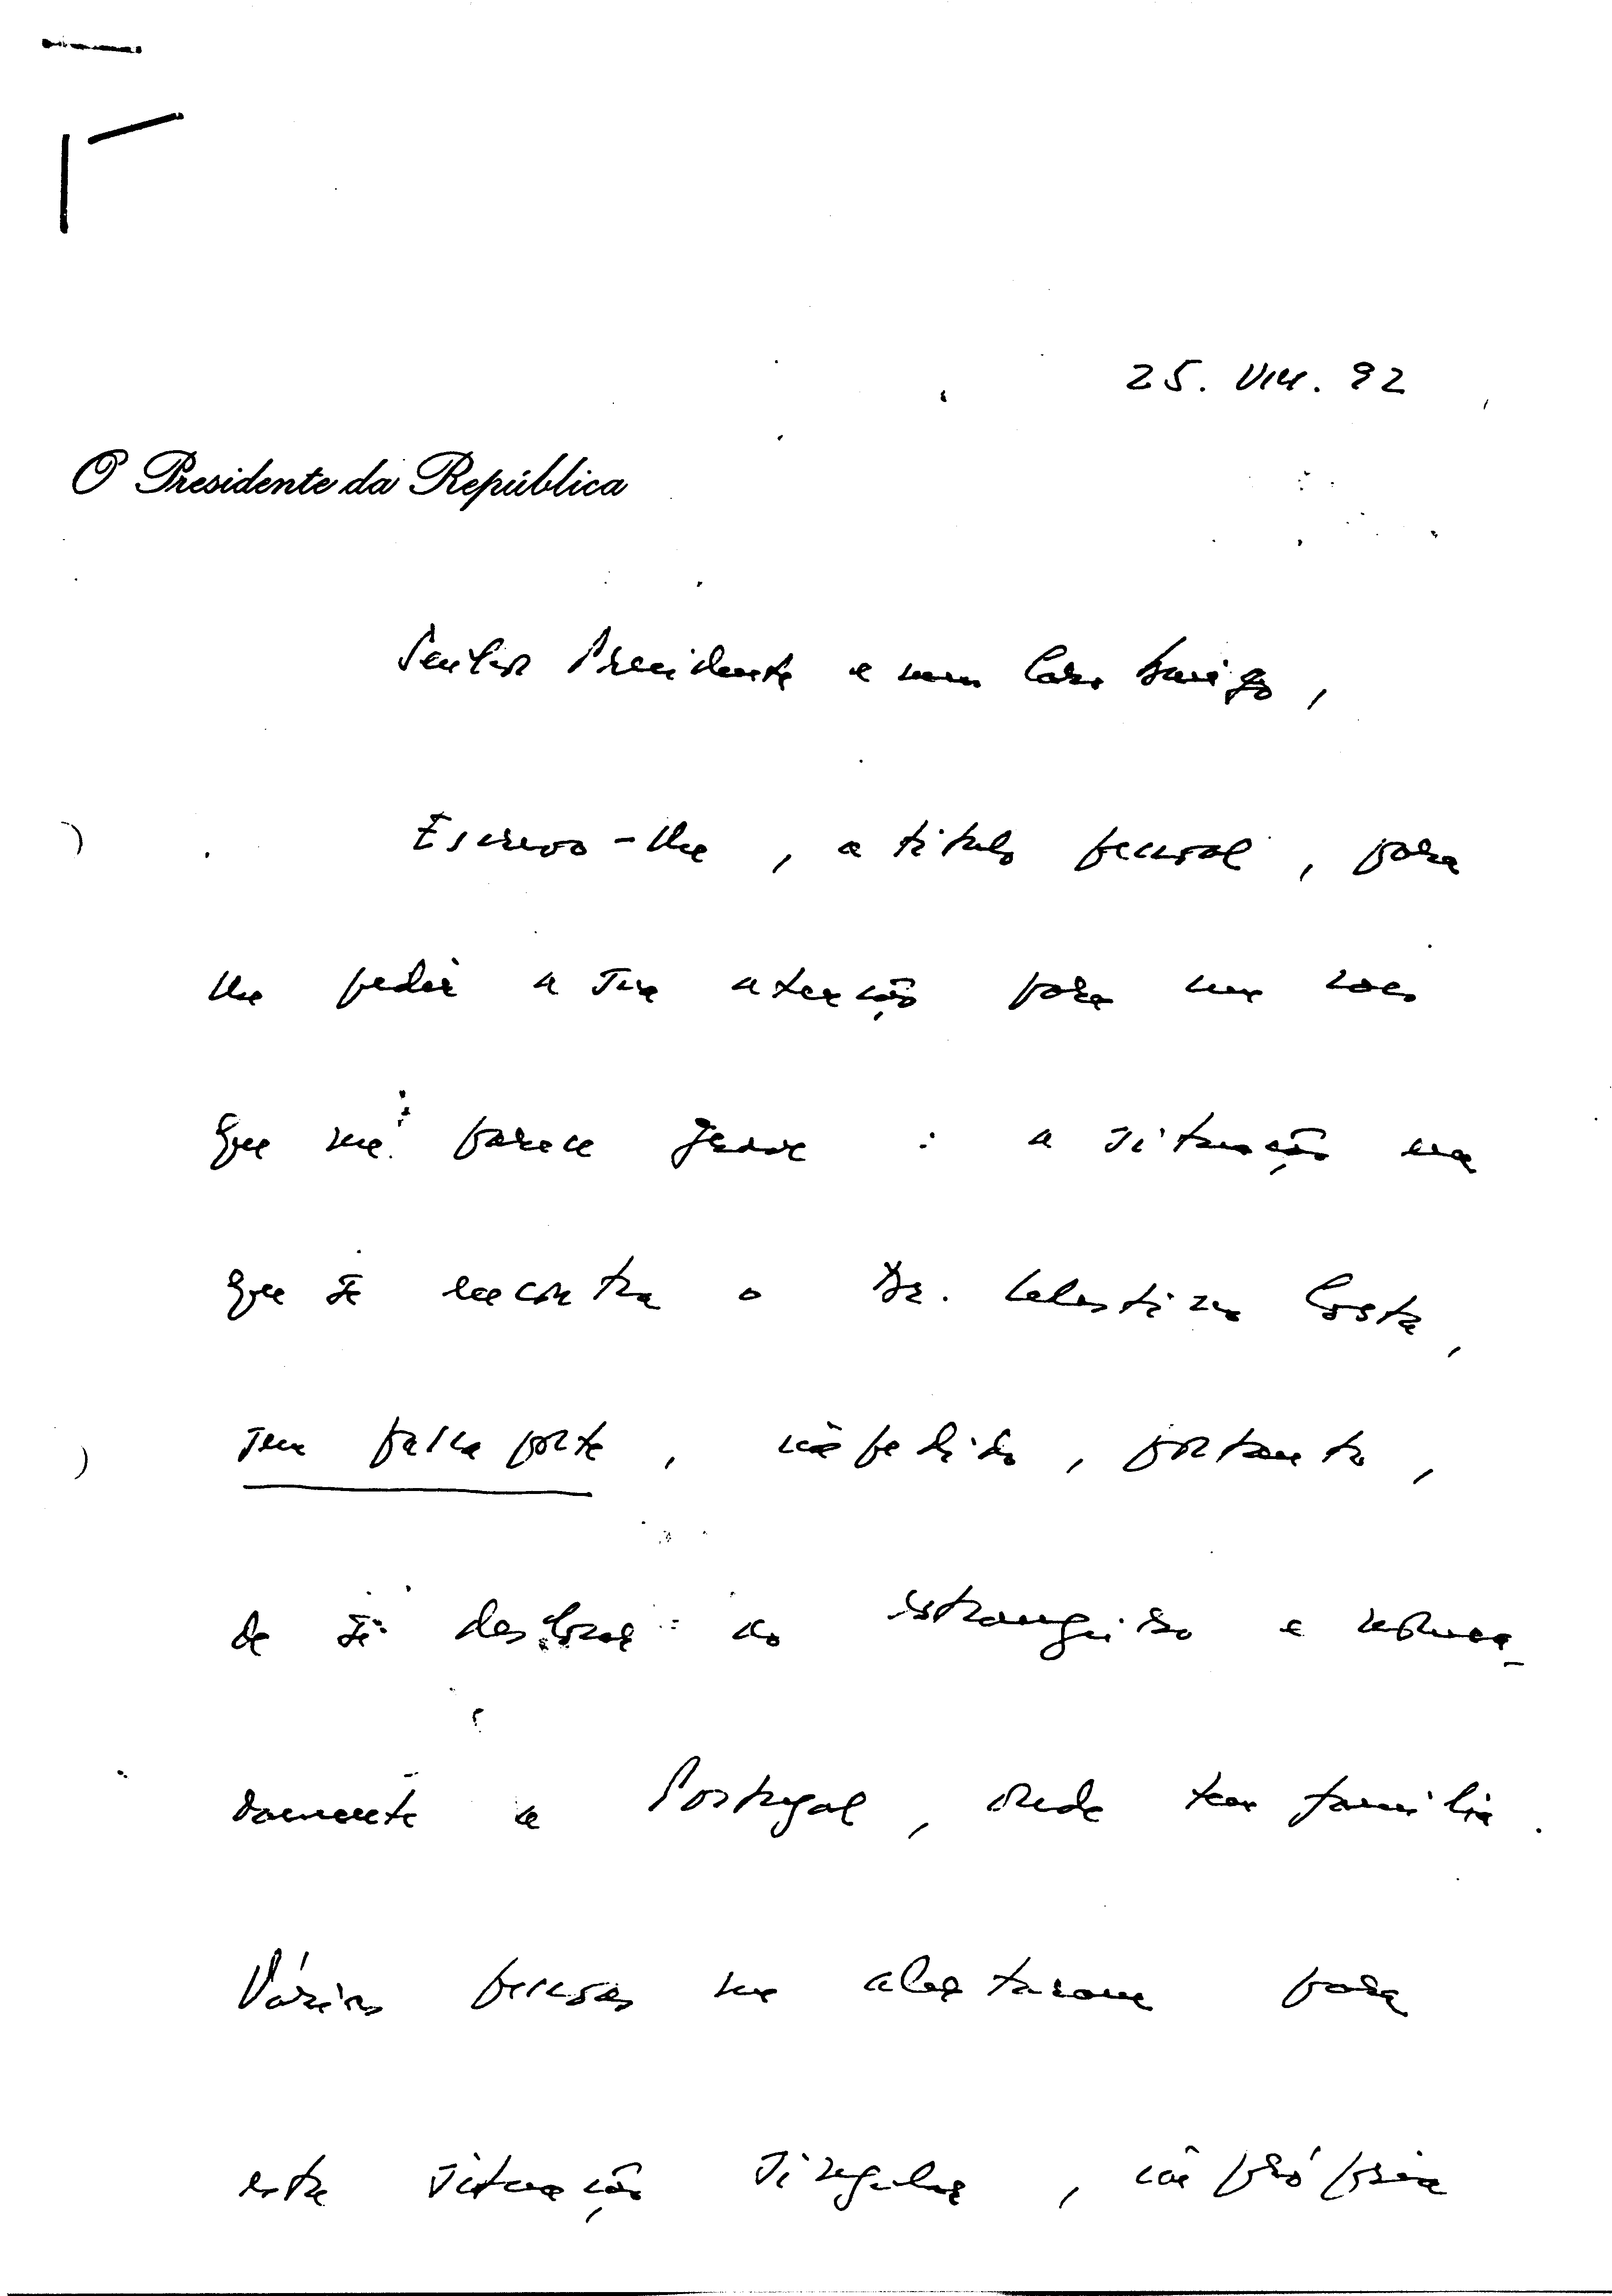 25. VIII. 92
O Presidente da República
Senhor Presidente e meu Caro Amigo,
Escrevo-lhe, a título pessoal, para
lhe pedir a sua atenção para um caso
que me parece grave: a situação em
que se encontra o Dr. Celestino Costa,
sem passaporte, impedido, portanto,
de se deslocar ao estrangeiro e
damente a Portugal, onde tem família.
Várias pessoas me alertaram para
esta situação singular, não própria